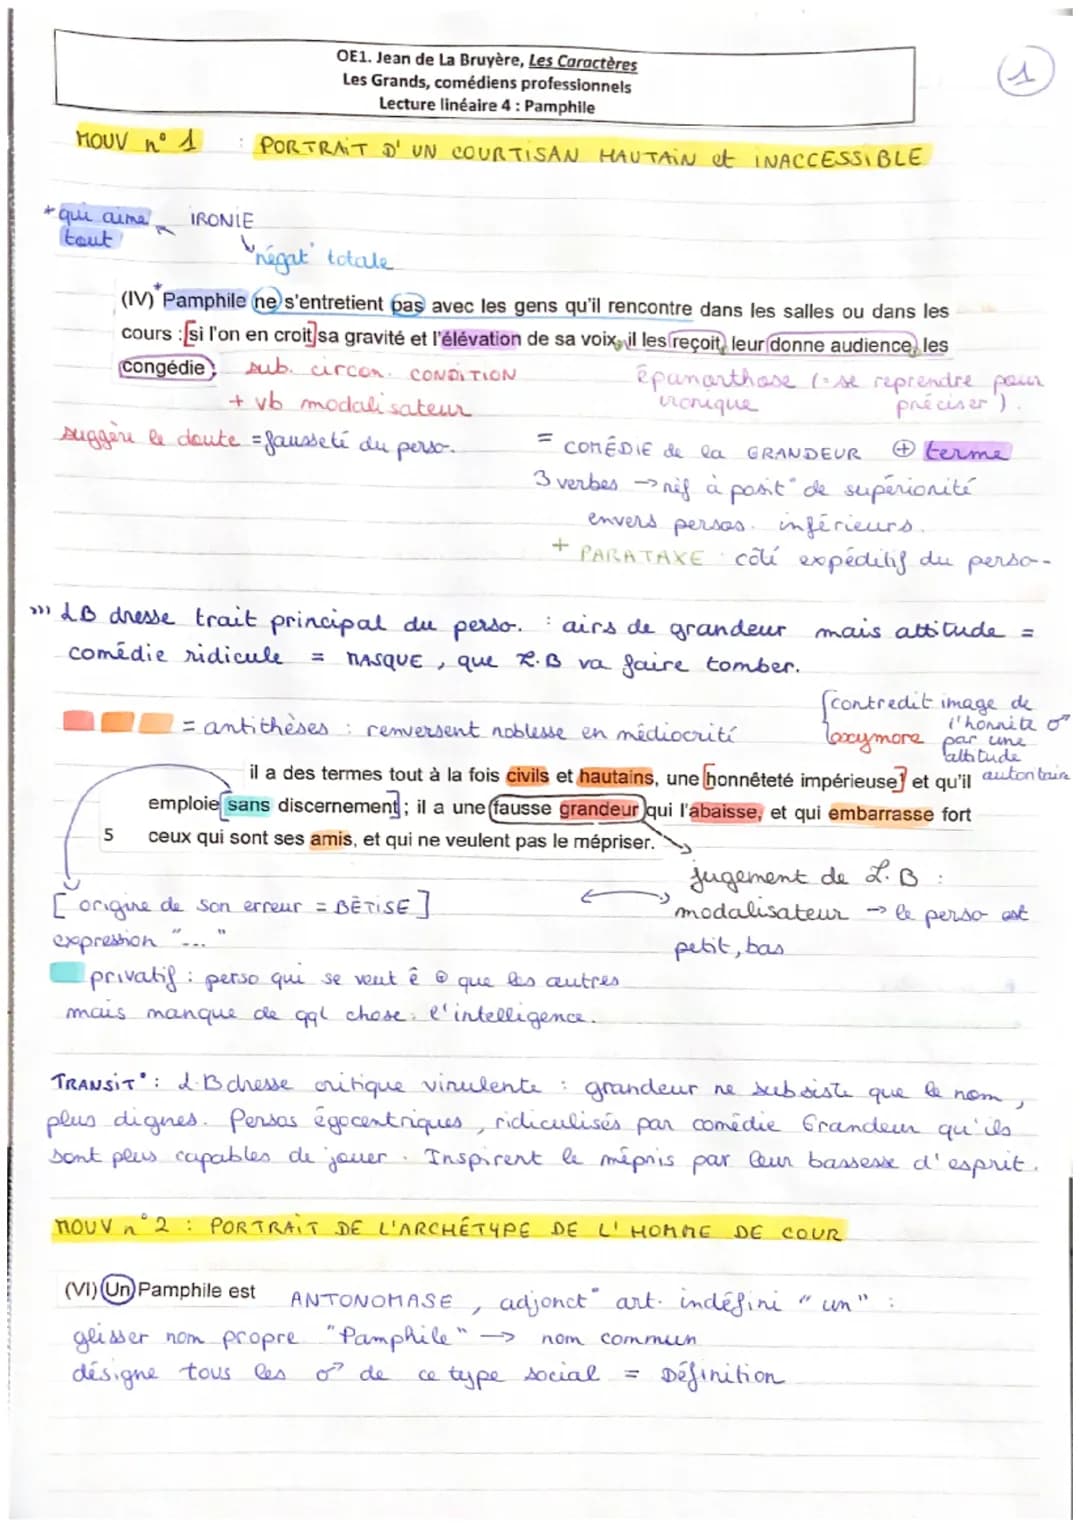 OE1. Jean de La Bruyère, Les Caractères
Les Grands, comédiens professionnels
Lecture linéaire 4 : Pamphile
1
MOUV n° 1 : PORTRAIT D'UN COURTISAN HAUTAIN et INACCESSIBLE
* qui aime IRONIE
tout
négat° totale
(IV) *Pamphile ne s'entretient pas avec les gens qu'il rencontre dans les salles ou dans les
cours : [si l'on en croit] sa gravité et l'élévation de sa voix, il les reçoit, leur donne audience, les
congédie ; sub. circon. CONDITION
épanorthose (= se reprendre pour
+ vb modalisateur
ironique préciser).
suggère le doute = fausseté du perso.
= COMÉDIE de la GRANDEUR ⊕ terme
3 verbes → réf à posit° de supériorité
envers persos. inférieurs.
+ PARATAXE : côté expéditif du perso.
»» LB dresse trait principal du perso. : airs de grandeur mais attitude =
comédie ridicule = MASQUE, que L.B va faire tomber.
contredit image de
l'honnête ♂
= antithèses : renversent noblesse en médiocrité
oxymore par une
attitude
autoritaire
il a des termes tout à la fois civils et hautains, une [honnêteté impérieuse] et qu'il
emploie [sans discernement] ; il a une fausse grandeur qui l'abaisse, et qui embarrasse fort
5 ceux qui sont ses amis, et qui ne veulent pas le mépriser.
jugement de L.B :
[origine de son erreur = BÊTISE]
modalisateur → le perso est
expression "... "
petit, bas
privatif : perso qui se veut ê ⊕ que les autres
mais manque de qql chose : l'intelligence.
TRANSIT° : L.B dresse critique virulente : grandeur ne subsiste que le nom,
plus dignes. Persos égocentriques, ridiculisés par comédie Grandeur qu'ils
sont plus capables de jouer. Inspirent le mépris par leur bassesse d'esprit.
MOUV n° 2 : PORTRAIT DE L'ARCHÉTYPE DE L'HOMME DE COUR
(VI) Un Pamphile est ANTONOMASE, adjonct° art. indéfini "un" :
glisser nom propre "Pamphile" → nom commun
désigne tous les ♂ de ce type social = Définition